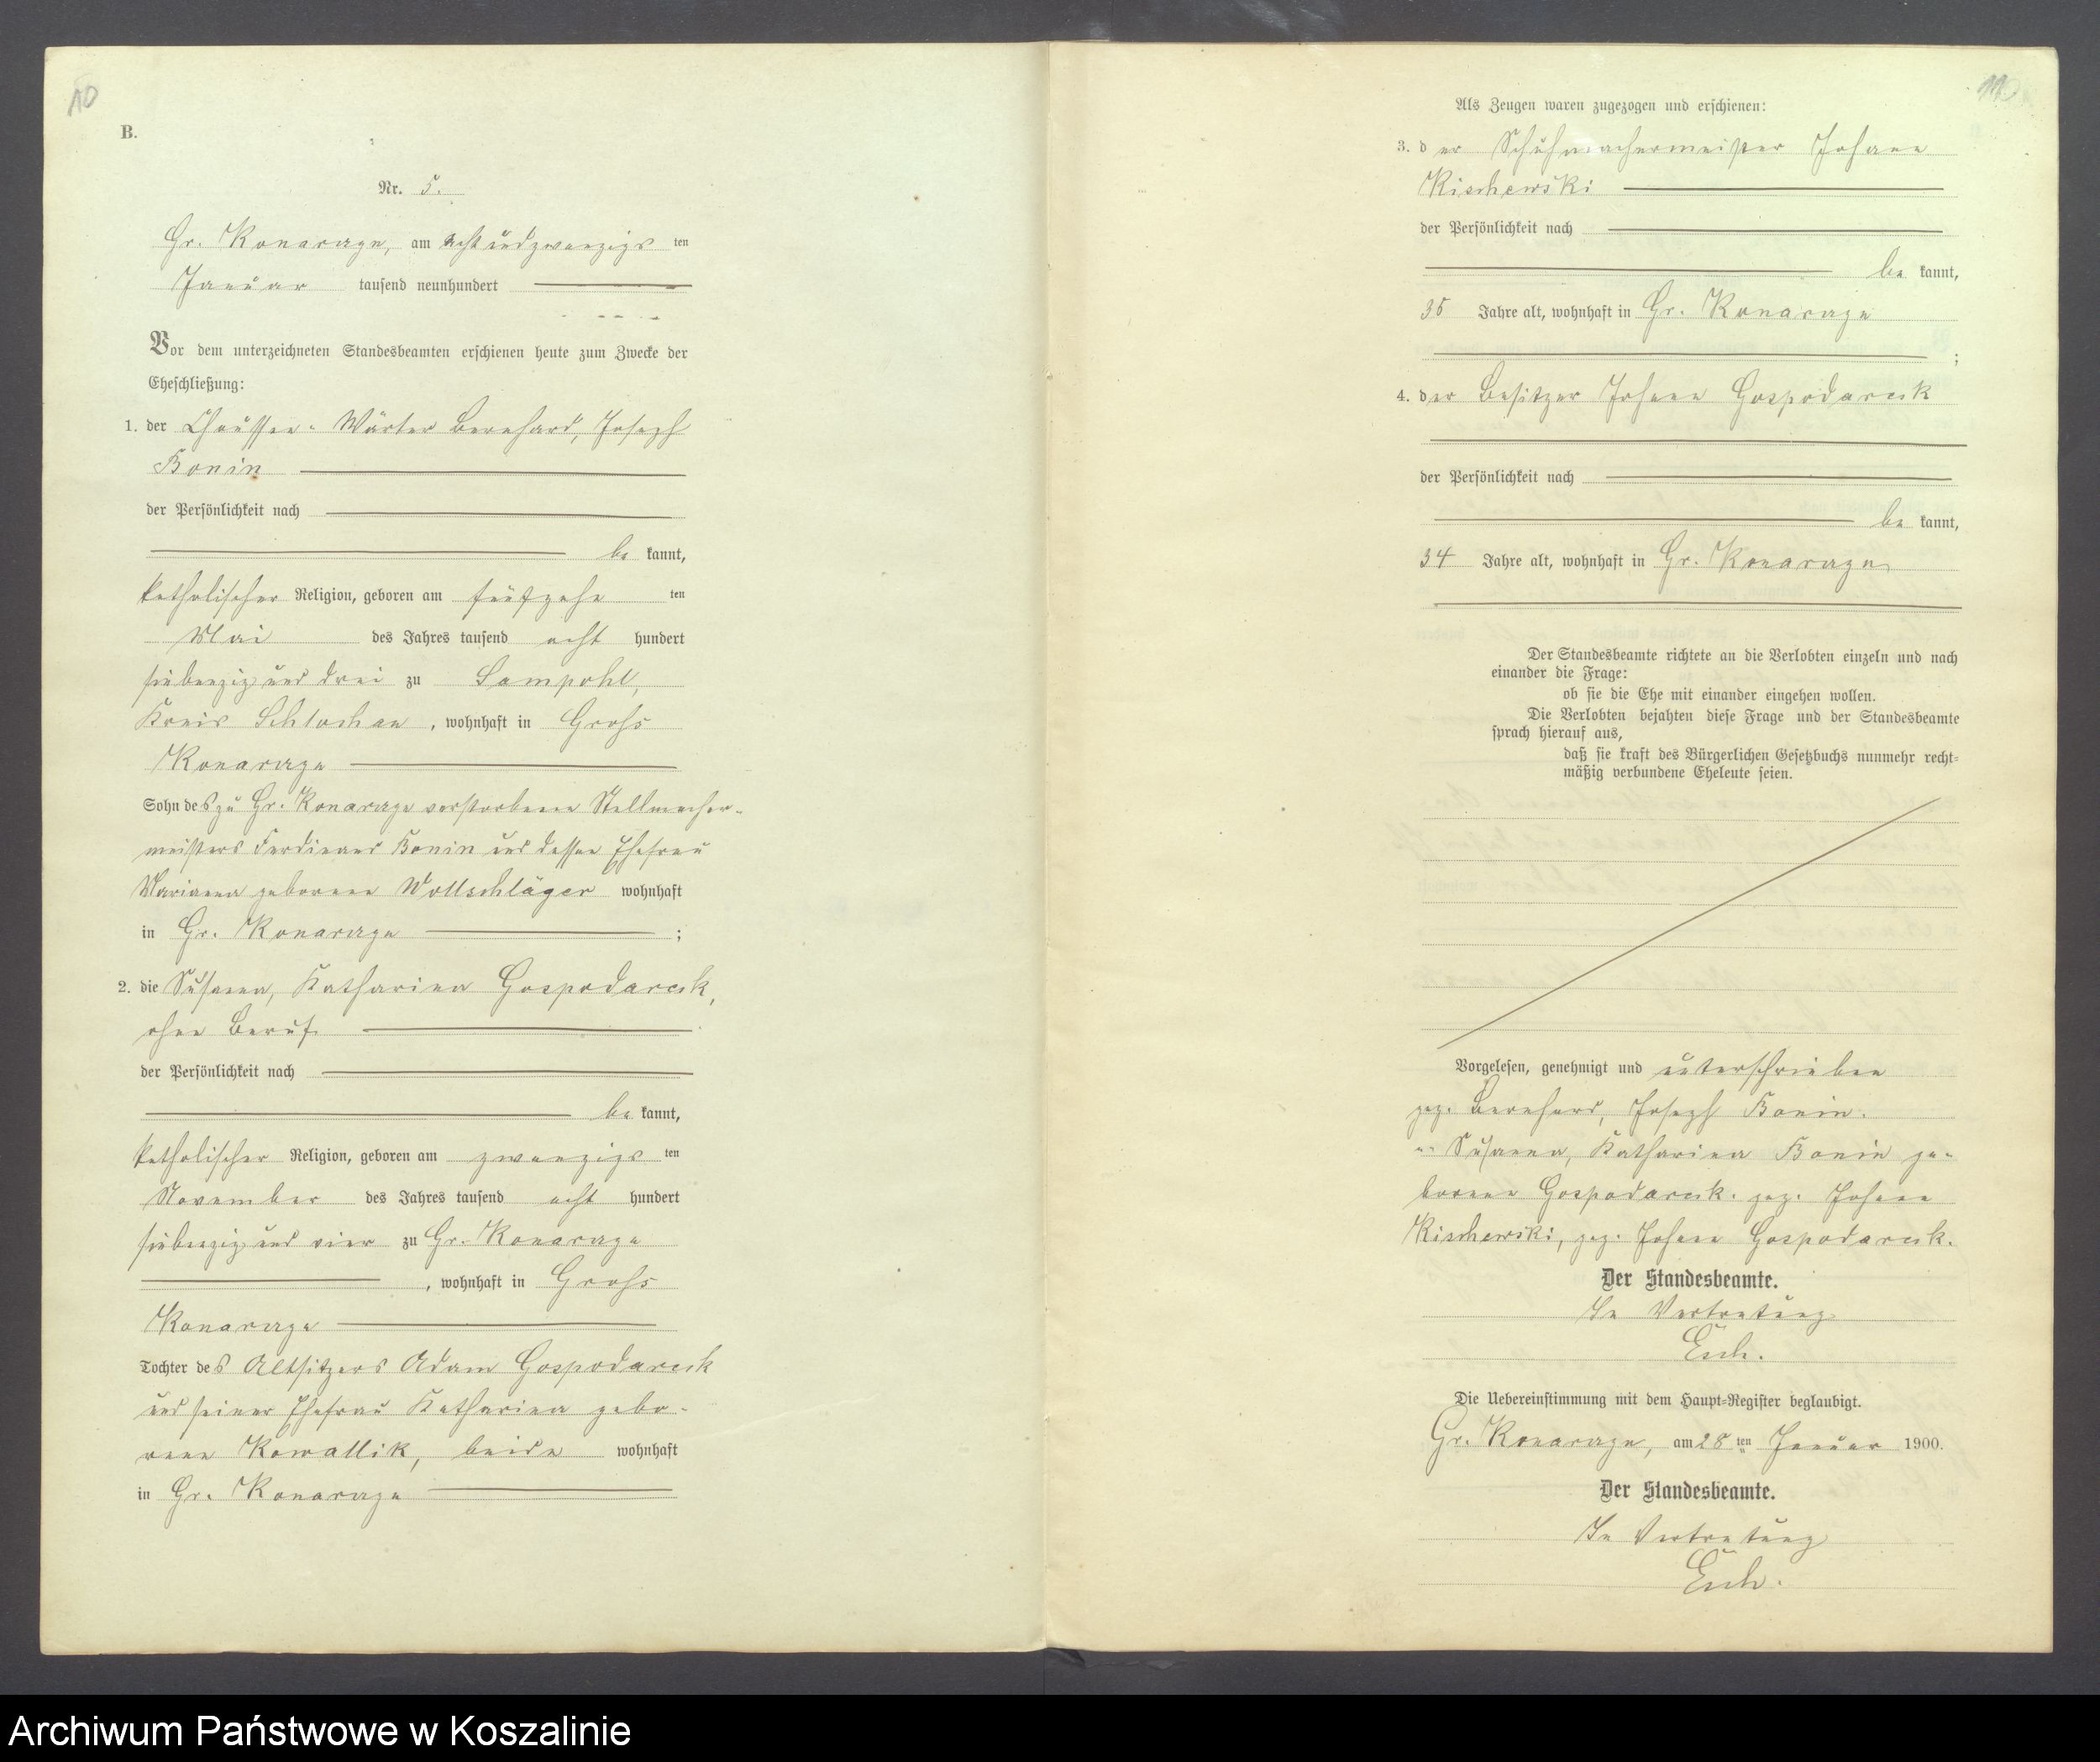 10
B.
Nr. 5.
Gr. Konarczyn, am achtundzwanzigs ten
Januar tausend neunhundert
Vor dem unterzeichneten Standesbeamten erschienen heute zum Zwecke der
Eheschließung:
1. der Chaussee-Wärter Bernhard, Joseph
Bonin
der Persönlichkeit nach
be kannt,
katholischer Religion, geboren am fünfzehn ten
Mai des Jahres tausend acht hundert
siebenzig und drei zu Sampohl,
Kreis Schlochau, wohnhaft in Groß
Konarczyn
Sohn des zu Gr. Konarczyn verstorbenen Stellmacher-
meisters Ferdinand Bonin und dessen Ehefrau
Marianna geborenen Wollschläger wohnhaft
in Gr. Konarczyn ;
2. die Susanna, Katharina Gospodarek,
ohne Beruf
der Persönlichkeit nach
be kannt,
katholischer Religion, geboren am zwanzigs ten
November des Jahres tausend acht hundert
siebenzig und vier zu Gr. Konarczyn
, wohnhaft in Groß
Konarczyn
Tochter des Altsitzers Adam Gospodarek
und seiner Ehefrau Katharina gebo-
rene Kowallik, beide wohnhaft
in Gr. Konarczyn
11
Als Zeugen waren zugezogen und erschienen:
3. der Schuhmachermeister Johann
Kischewski
der Persönlichkeit nach
be kannt,
35 Jahre alt, wohnhaft in Gr. Konarczyn
;
4. der Besitzer Johann Gospodarek
der Persönlichkeit nach
be kannt,
34 Jahre alt, wohnhaft in Gr. Konarczyn
Der Standesbeamte richtete an die Verlobten einzeln und nach
einander die Frage:
ob sie die Ehe mit einander eingehen wollen.
Die Verlobten bejahten diese Frage und der Standesbeamte
sprach hierauf aus,
daß sie kraft des Bürgerlichen Gesetzbuchs nunmehr recht-
mäßig verbundene Eheleute seien.
Vorgelesen, genehmigt und unterschrieben
gez. Bernhard, Joseph Bonin.
" Susanna, Katharina Bonin ge-
borene Gospodarek. gez. Johann
Kischewski, gez. Johann Gospodarek.
Der Standesbeamte.
In Vertretung
Esch.
Die Uebereinstimmung mit dem Haupt-Register beglaubigt.
Gr. Konarczyn, am 28 ten Januar 1900.
Der Standesbeamte.
In Vertretung
Esch.
Archiwum Państwowe w Koszalinie